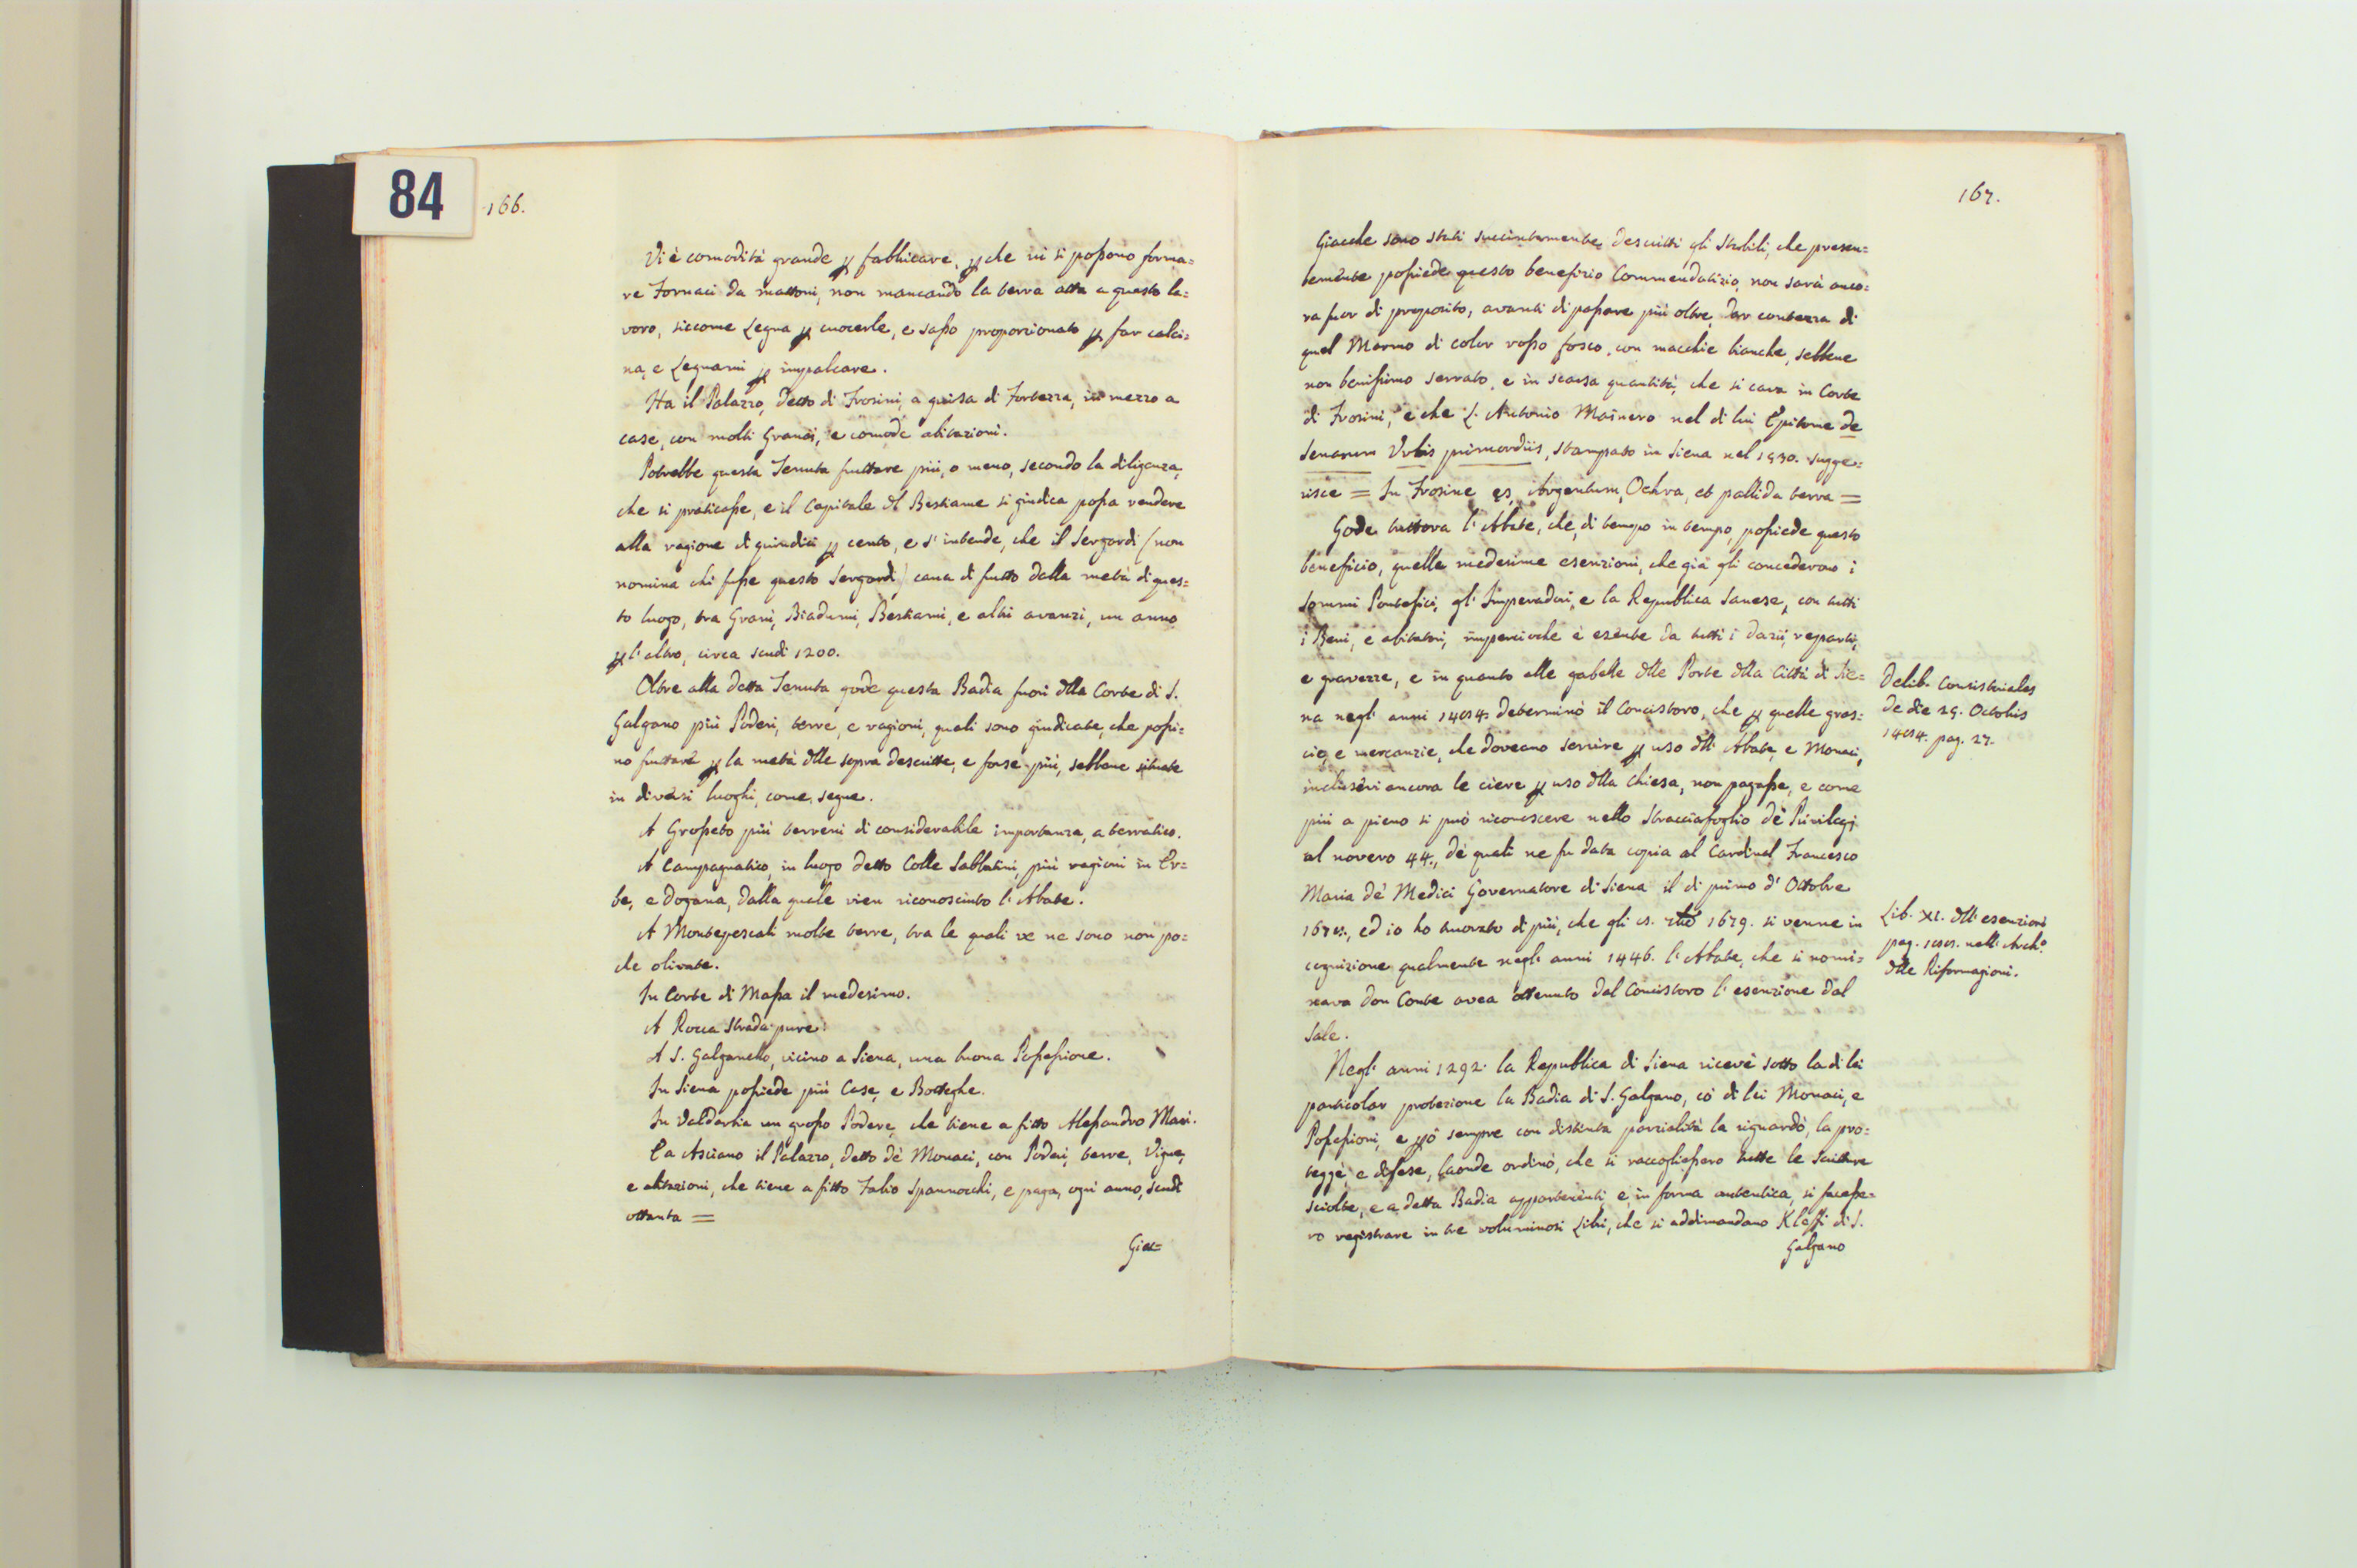 84
166.
Vi è comodità grande p fabbricare, p che vi si possono forma=
re Fornaci da mattoni, non mancando la terra atta a questo la=
voro, siccome Legna p cuocerle, e sasso proporzionato p far calci=
na, e Legnami p impalcare.
Ha il Palazzo, detto di Frosini, a guisa di Fortezza, in mezzo a
case, con molti Granai, e comode abitazioni.
Potrebbe questa Tenuta fruttare più, o meno, secondo la diligenza,
che si praticasse, e il Capitale dl Bestiame si giudica possa rendere
alla ragione di quindici p cento, e s' intende, che il Sergardi (non
nomina chi fusse questo Sergardi) cava di frutto dalla metà di ques=
to luogo, tra Grani, Biadumi, Bestiami, e altri avanzi, un anno
p l' altro, circa scudi 1200.
Oltre alla detta Tenuta gode questa Badia fuori dlla Corte di S.
Galgano più Poderi, terre, e ragioni, quali sono giudicate, che possi=
no fruttare p la metà dlle sopra descritte, e forse più, sebbene situate
in diversi luoghi, come segue.
A Grosseto più terreni di considerabile importanza, a terratico.
A Campagnatico, in luogo detto Colle Sabbatini, più ragioni in Er=
be, e Dogana, dalla quale vien riconosciuto l' Abate.
A Montepescali molte terre, tra le quali ve ne sono non po=
che olivate.
In Corte di Massa il medesimo.
A Rocca Strada pure.
A S. Galganello, vicino a Siena, una buona Possessione.
In Siena possiede più Case, e Botteghe.
In Valdarbia un grosso Podere, che tiene a fitto Alessandro Mari.
Ca Asciano il Palazzo, detto de' Monaci, con Poderi, terre, Vigne,
e abitazioni, che tiene a fitto Falio Spannocchi, e paga, ogni anno, scudi
ottanta =
Giac=
167.
Giacche sono stati succintamente descritti gli Stabili, che presen=
temente possiede questo benefizio Commendatizio, non sarà anco=
ra fuor di proposito, avanti di passare più oltre, dar contezza di
quel Marmo di color rosso fosco, con macchie bianche, sebbene
non benissimo serrato, e in scarsa quantità, che si cava in Corte
di Frosini, e che L. Antonio Mainero nel di lui Epitome de
Senarum Urbis primordiis, stampato in Siena nel 1530. sugge=
risce = In Frosine es, Argentum, Ochra, et pallida terra =
Gode tuttora l' Abate, che, di tempo in tempo, possiede questo
beneficio, quelle medesime esenzioni, che già gli concederono i
Sommi Pontefici, gl' Imperadori, e la Repubblica Sanese, con tutti
i Beni, e abitatori, imperciocche è esente da tutti i dazii, reparti,
e gravezze, e in quanto alle gabelle dlle Porte dlla Città di Sie=
na negl' anni 1454. determinò il Concistoro, che p quelle gras=
cie, e mercanzie, che doveano servire p uso dll' Abate, e Monaci,
inclusevi ancora le ciere p uso dlla Chiesa, non pagasse, e come
più a pieno si può riconoscere nello Stracciafoglio de' Privilegi
al novero 44., de' quali ne fu data copia al Cardinal Francesco
Maria de' Medici Governatore di Siena il di primo d' Ottobre
1675., ed io ho trovato di più, che gli 15. 1679. si venne in
cognizione qualmente negl' anni 1446. l' Abate, che si nomi=
nava Don Conte avea ottenuto dal Concistoro l' esenzione dal
Sale.
Negl' anni 1292. la Repubblica di Siena ricevè sotto la di lei
particolar protezione la Badia di S. Galgano, co' di lei Monaci, e
Possessioni, e pò sempre con distinta parzialità la riguardò, la pro=
tegge, e difese, laonde ordinò, che si raccogliessero tutte le Scritture
sciolte, e a detta Badia appartenenti, e, in forma autentica, si facesse=
ro registrare in tre voluminosi Libri, che si addimandano Kleffi di S.
Galgano
Delib. Consistoriales
de die 29. Octobris
1454. pag. 27.
Lib. XI. dll' esenzioni
pag. 155. nell' Arch.o
dlle Riformagioni.